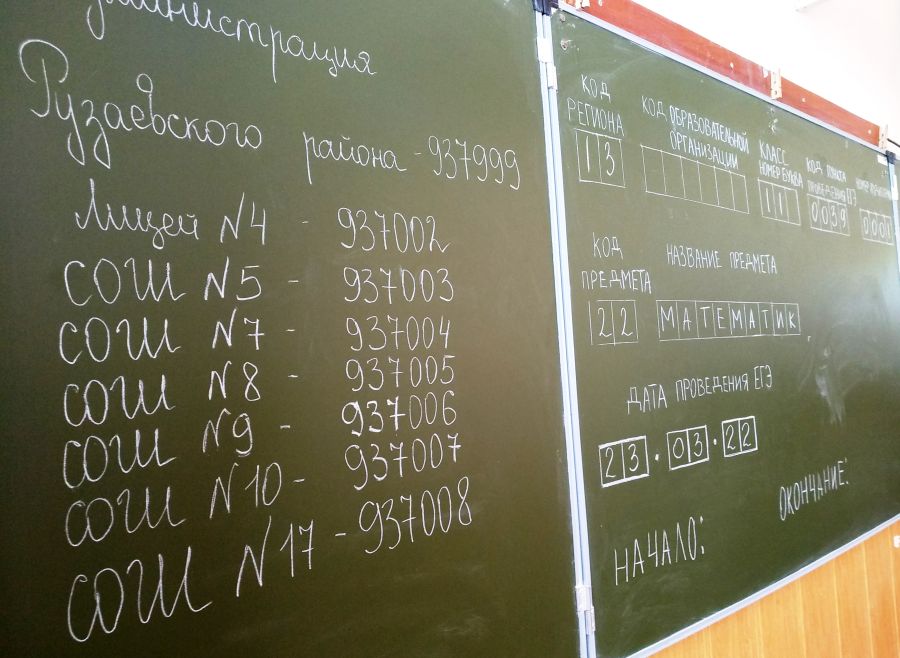 Администрация
Рузаевского района - 937999
Лицей №4 - 937002
СОШ №5 - 937003
СОШ №7 - 937004
СОШ №8 - 937005
СОШ №9 - 937006
СОШ №10 - 937007
СОШ №17 - 937008
КОД РЕГИОНА
13
КОД ОБРАЗОВАТЕЛЬНОЙ
ОРГАНИЗАЦИИ
КЛАСС
НОМЕР БУКВА
11
КОД ПУНКТА
ПРОВЕДЕНИЯ ЕГЭ
0039
НОМЕР АУДИТОРИИ
0001
КОД
ПРЕДМЕТА
22
НАЗВАНИЕ ПРЕДМЕТА
МАТЕМАТИК
ДАТА ПРОВЕДЕНИЯ ЕГЭ
23.03.22
НАЧАЛО:
ОКОНЧАНИЕ: